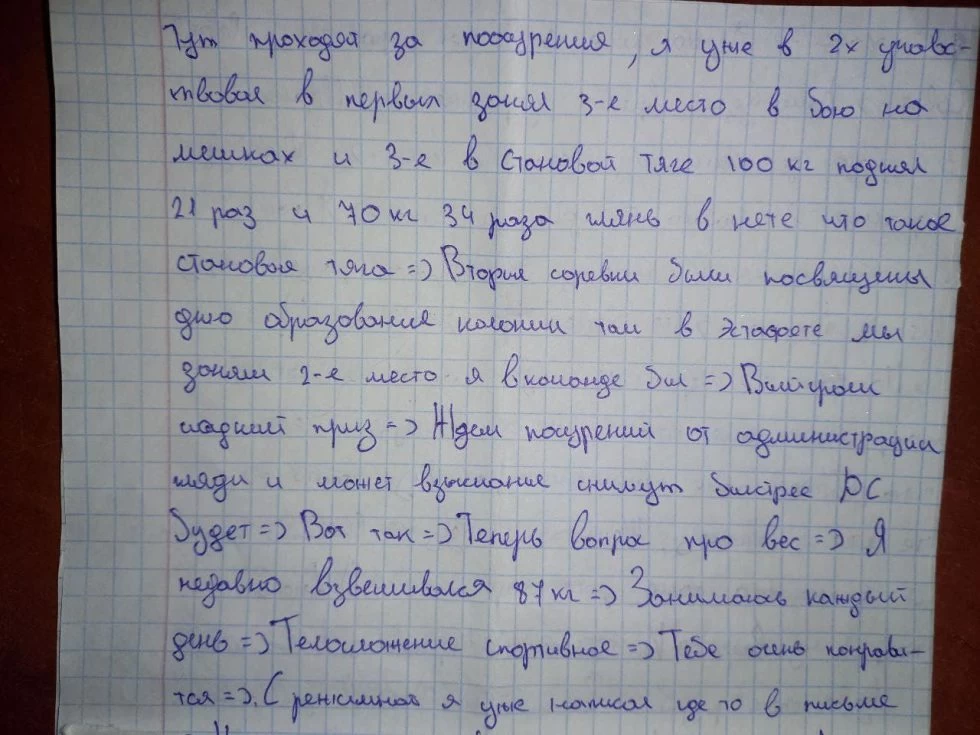 Тут проходят за поощрения, я уже в 2х учавс-
твовал в первых занял 3-е место в бою на
мешках и 3-е в Становой тяге 100 кг поднял
21 раз и 70 кг 34 раза глянь в нете что такое
становая тяга => Вторые соревн были посвящены
дню образования колонии там в Эстафете мы
заняли 2-е место я в команде был => Выйграли
сладкий приз => Ждем поощрений от администрации
гляди и может взыскание снимут быстрее ДС
будет => Вот так => Теперь вопрос про вес => Я
недавно взвешивался 87 кг => Занимаюсь каждый
день => Телосложение спортивное => Тебе очень понрави-
тся =>. С режимкой я уже написал где то в письме